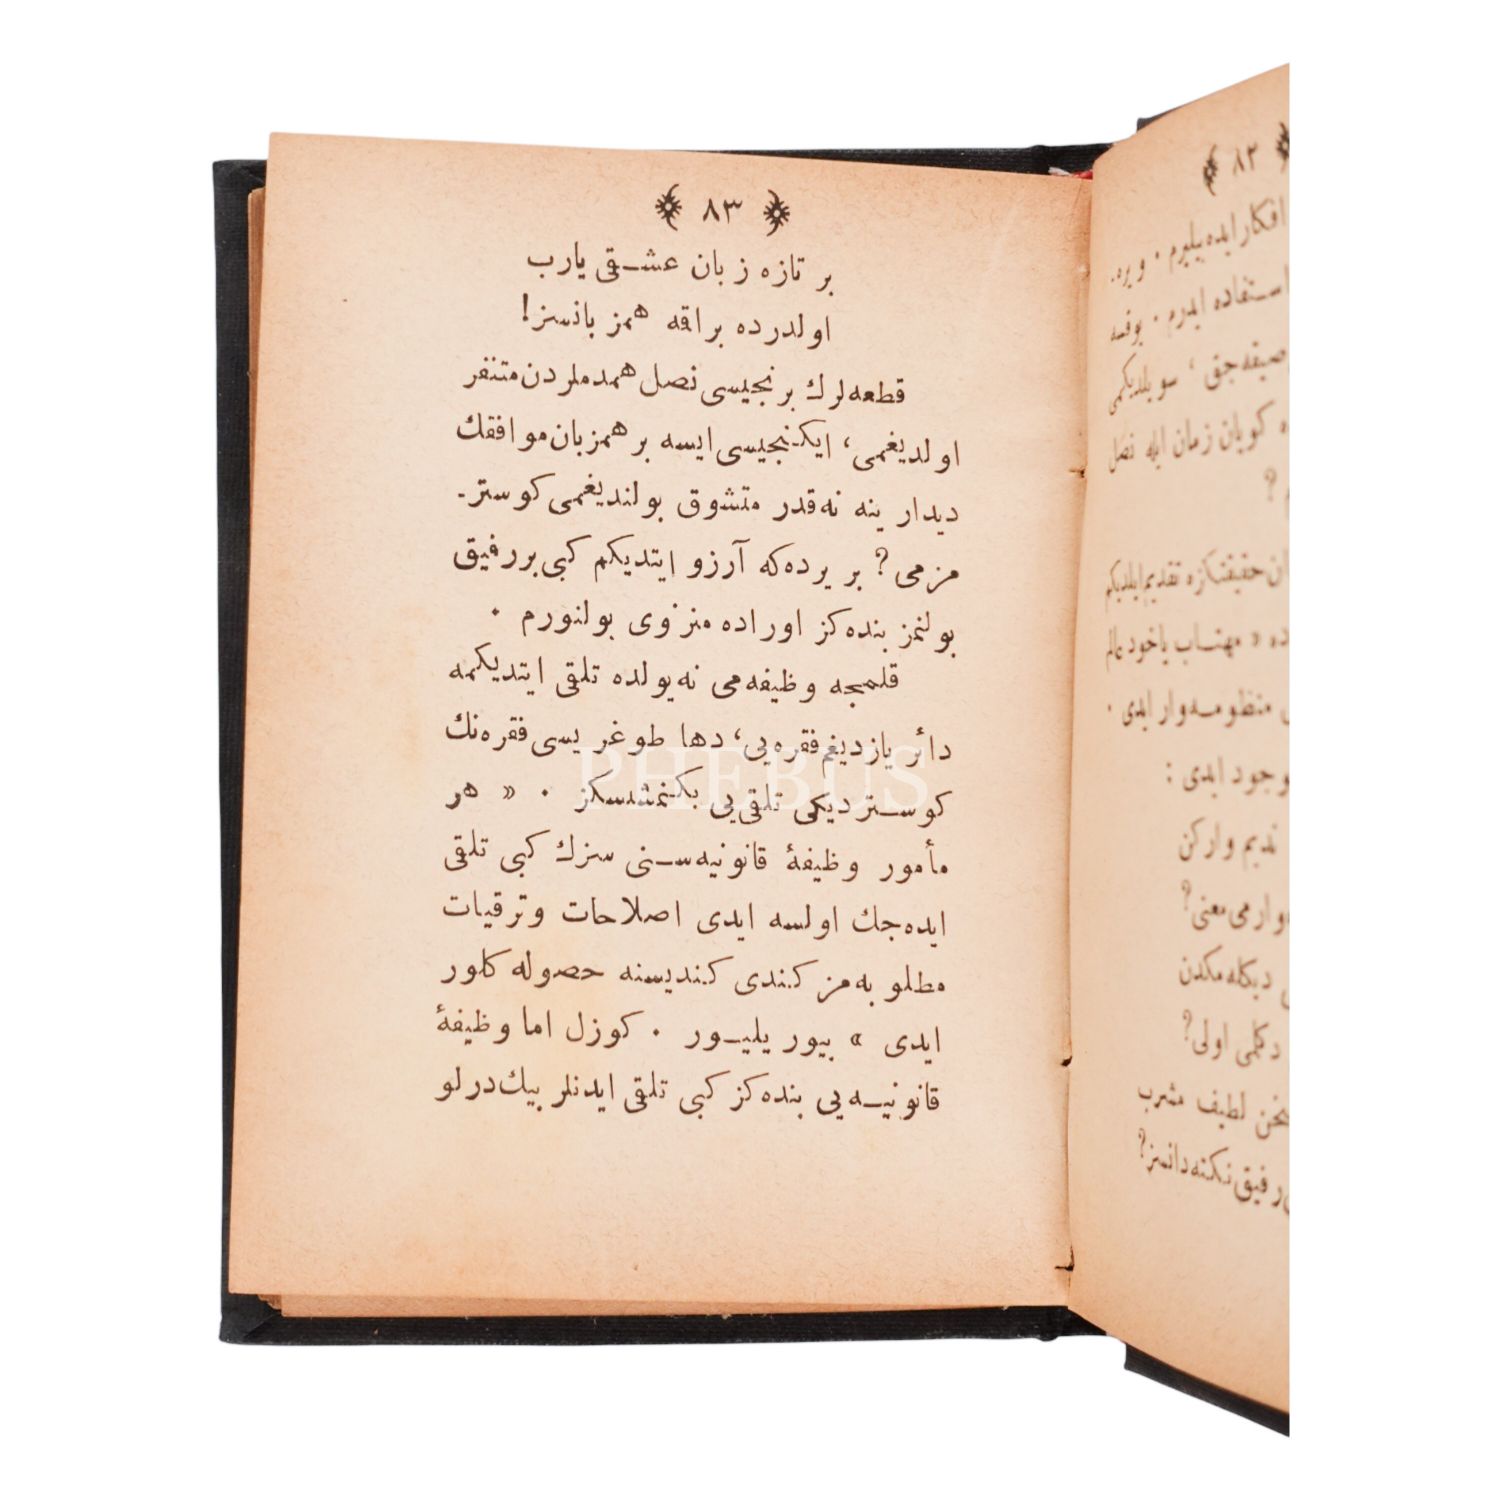 ٨٣
بر تازه زبان عشقی یارب
اولدرده براقه همز بانسز!
قطعه‌لرك برنجیسی نصل همدملردن متنفر
اولدیغمی، ایكنجیسی ایسه بر همزبان موافقك
دیدارینه نه‌قدر متشوق بولندیغمی كوستر-
مزمی؟ بر یرده‌كه آرزو ایتدیكم كبی بر رفیق
بولنمز بنده‌كز اوراده منزوی بولنورم .
قلمجه وظیفه‌می نه‌یولده تلقی ایتدیكمه
دائر یازدیغم فقره‌یی، دها طوغریسی فقره‌نك
كوستردیكی تلقی‌یی بكنمشسكز . « هر
مأمور وظیفهٔ قانونیه‌سنی سزك كبی تلقی
ایده‌جك اولسه ایدی اصلاحات وترقیات
مطلوبه‌مز كندی كندیسنه حصوله كلور
ایدی » بیوریلیور . كوزل اما وظیفهٔ
قانونیه‌یی بنده‌كز كبی تلقی ایدنلر بیك‌درلو
PHEBUS
٨٢
افكار ایده‌بیلیرم . ویره‌-
استفاده ایدرم . بوقسه
سویلدیكمی
كویان زمان ایله نصل
؟
حقیقتكزه تقدیم ایلدیكم
ده « مهتاب یاخود عالم
منظومه‌وار ایدی .
وجود ایدی :
ندیم واركن
وارمی معنی؟
دیكله‌مكدن
دكلمی اولی؟
سخن لطیف مشرب
رفیق نكته‌دانسز؟